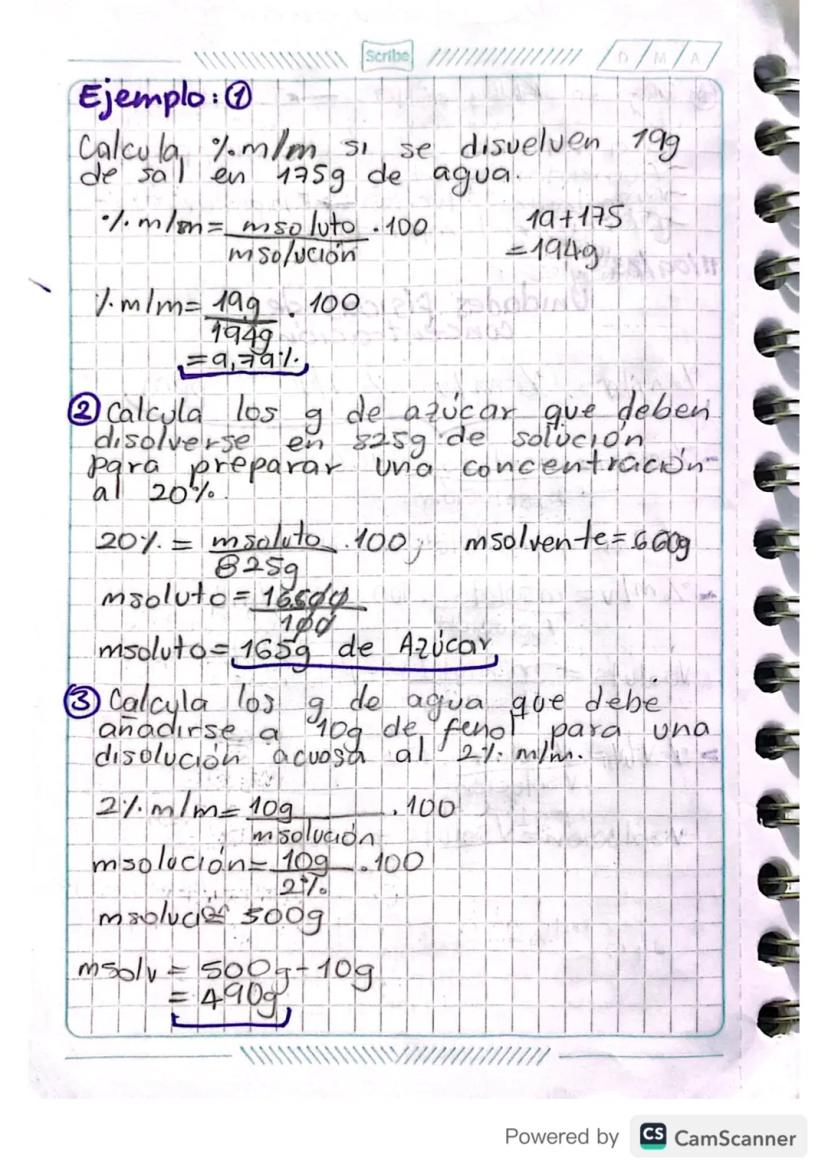 Scribe
D / M / A
Ejemplo: ①
Calcula %m/m si se disuelven 19g
de sal en 175g de agua.
% m/m = msoluto / msolución . 100
19+175
= 194g
% m/m = 19g / 194g . 100
= 9,79%
② Calcula los g de azúcar que deben
disolverse en 825g de solución
para preparar una concentración
al 20%.
20% = msoluto / 825g . 100; msolvente = 660g
msoluto = 16500 / 100
msoluto = 165g de Azúcar
③ Calcula los g de agua que debe
añadirse a 10g de fenol para una
disolución acuosa al 2% m/m.
2% m/m = 10g / msolución . 100
msolución = 10g / 2% . 100
msolución 500g
msolv = 500g - 10g
= 490g
Powered by CS CamScanner